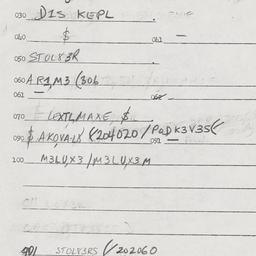 030 DIS KEPL .
040 $ 041 —
050 STOLX3R .
060 AR1,M3 (306
061 — 062 —
070 LEXTL,MAXE, $
090 $ AKOVA-LX (204020 / PODK3V35(
091 —
100 M3LU,X3 / M3LU,X3M
901 STOLX3RS (/ 202060